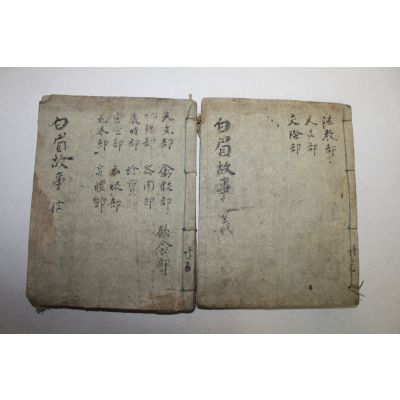 法教部
人品部
交際部
白眉故事 義
天文部 禽獸部
地理部 器用部
歲時部 珍寶部
宮室部 衣服部
花木部 身體部
飮食部
白眉故事 信